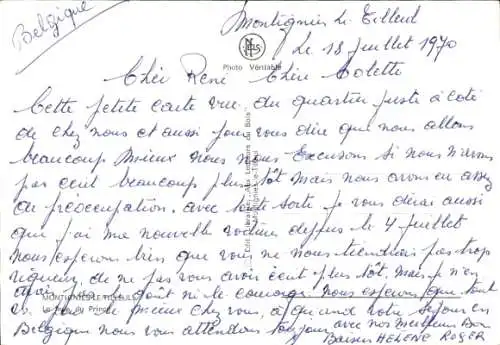 Belgique
Montignies le Tilleul
Le 18 juillet 1970
NELS
Photo Véritable
Chéi René Chère Colette
Cette petite carte vue du quartier juste à coté
de chez nous et aussi pour vous dire que nous allons
beaucoup mieux nous nous Excusons si nous n'avons
pas ecrit beaucoup plus tôt mais nous avons eu assez
de préoccupation. avec tout sorte je vous dirai aussi
que j'ai ma nouvelle voiture depuis le 4 juillet
nous esperons bien que vous ne nous tiendriez pas trop
rigueur de ne pas vous avoir écrit plus tôt. mais je n'en
avais pas le goût ni le courage. nous esperons que tout
va pour le mieux chez vous, à quand votre séjour en
Belgique nous vous attendons toujours avec nos meilleurs Bon
Baisers HELENE ROGER
MONTIGNIES-LE-TILLEUL
du Prince